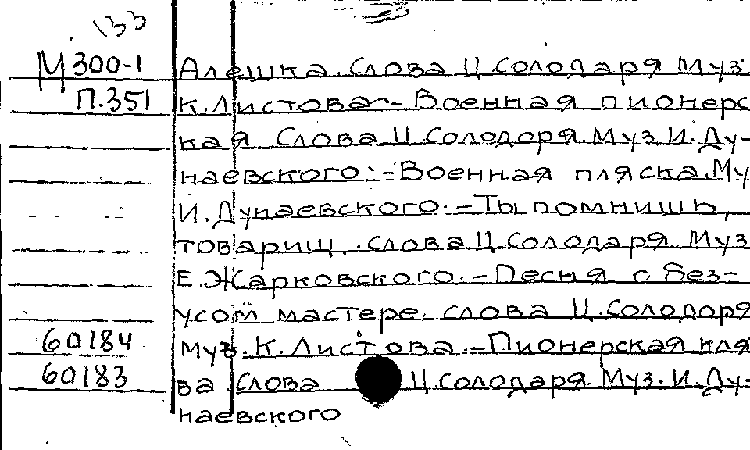 133
М300-1 Алешка. Слова Ц.Солодаря Муз.
П.351 К.Листова.- Военная пионерс
кая Слова Ц.Солодоря. Муз. И.Ду-
наевского.-Военная пляска. Му
И.Дунаевского.-Ты помнишь,
товарищ. слова Ц.Солодаря Муз
Е.Жарковского.-Песня о без-
усом мастере. слова Ц.Солодоря
60184 муз. К.Листова.-Пионерская кля
60183 ва Слова Ц.Солодаря Муз. И.Ду-
наевского